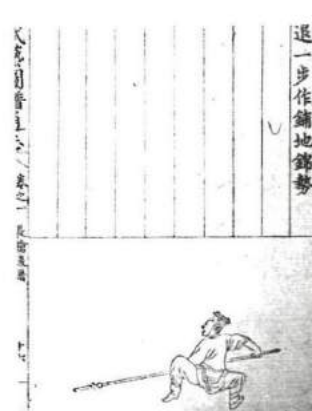 退一步作鋪地錦勢
武藝圖譜通志 卷之一 長槍後譜 十六